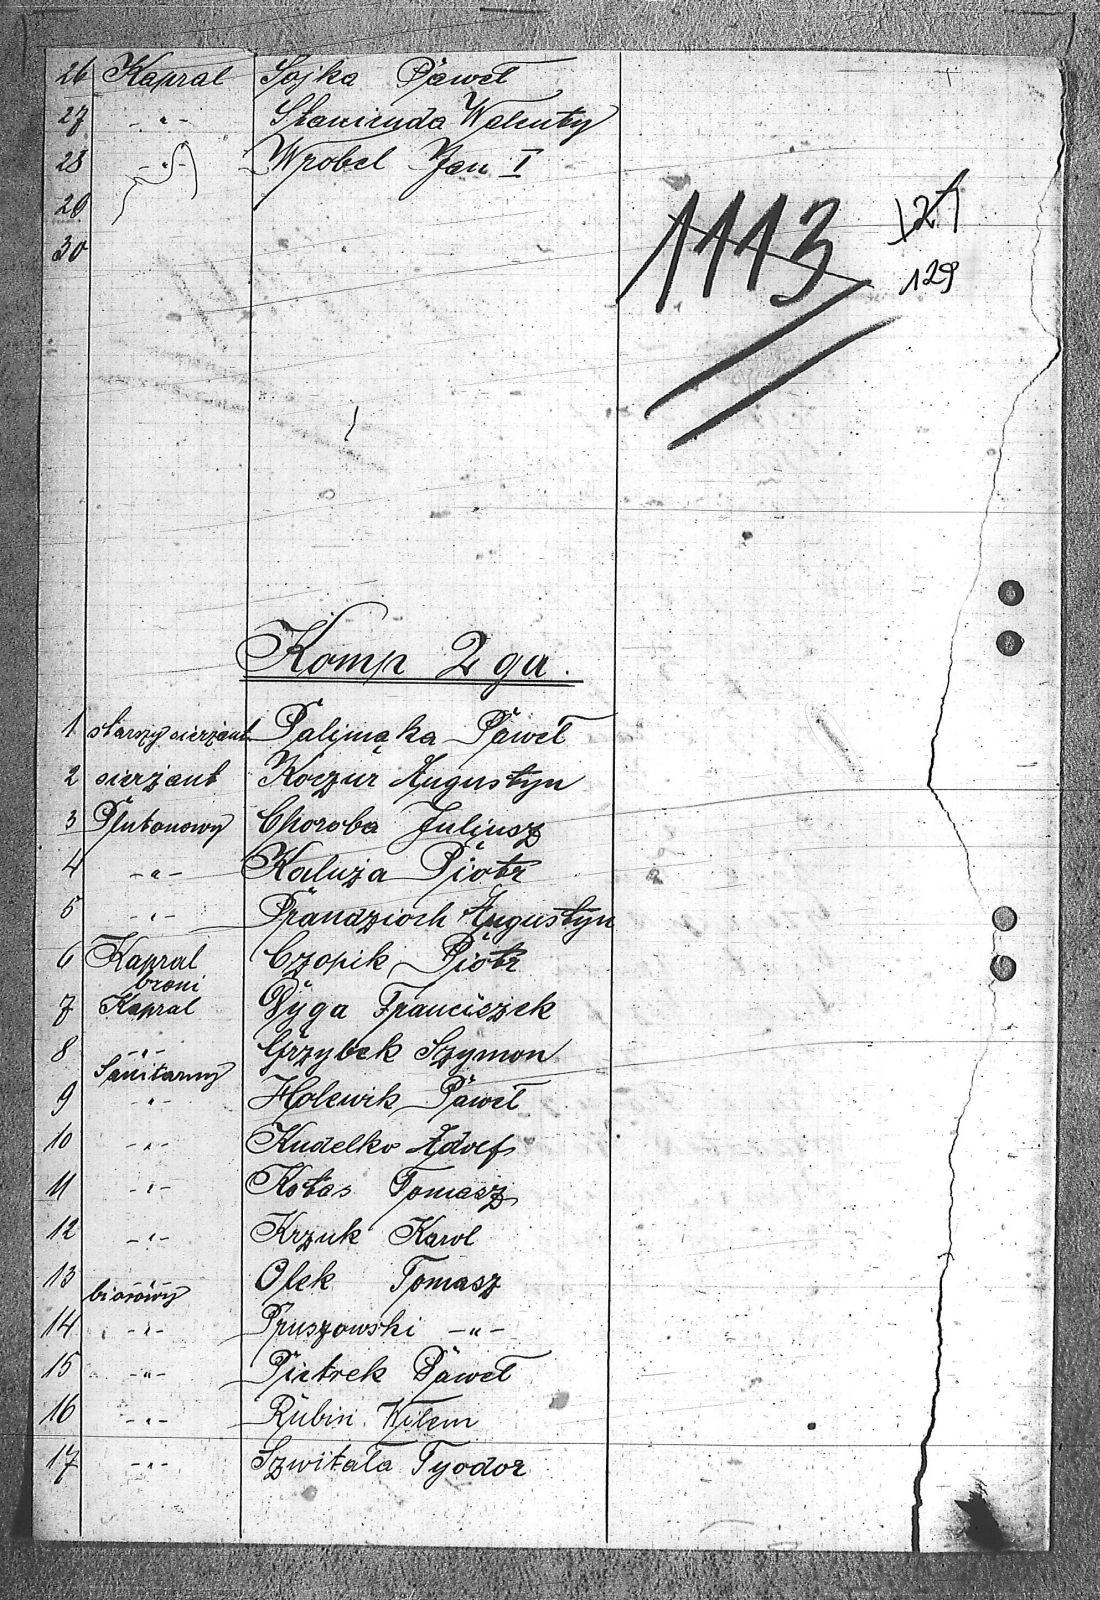 26 Kapral Sojka Paweł
27 -"- Stanienda Walenty
28 -"- Wrobel Jan I
29
30
1113
127
129
Komp 2ga.
1 starszy sierżant Palimąka Paweł
2 sierżant Koczur Augustyn
3 Plutonowy Choroba Juljusz
4 -"- Kaluża Piotr
5 -"- Prandzioch Augustyn
6 Kapral Czopik Piotr
broni
7 Kapral Dyga Franciszek
8 -"- Grzybek Szymon
Sanitarny
9 -"- Holewik Paweł
10 -"- Kudelko Adolf
11 -"- Kotas Tomasz
12 -"- Krzuk Karol
13 -"- Olek Tomasz
biorowy
14 -"- Pruszowski -"-
15 -"- Pietrek Paweł
16 -"- Rubin Wilem
17 -"- Szwitała Tyodor